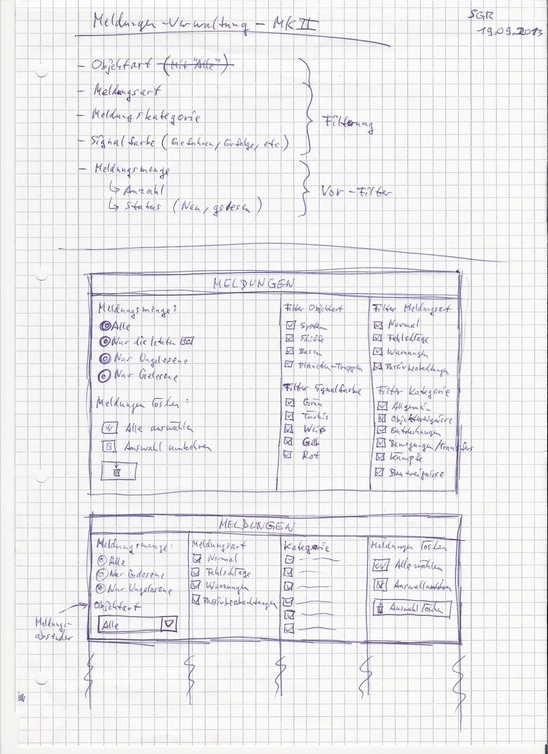 Meldungen-Verwaltung - MK II
SGR
19.09.2013
- Objektart (Mit "Alle")
- Meldungsart
- Meldungskategorie
- Signalfarbe (Gefahren, Erfolge, etc.)
Filterung
- Meldungsmenge
↳ Anzahl
↳ Status (Neu, gelesen)
Vor-Filter
MELDUNGEN
Meldungsmenge:
Alle
Nur die letzten
Nur Ungelesene
Nur Gelesene
Meldungen löschen:
Alle auswählen
Auswahl umkehren
Filter Objektart
System
Schiffe
Basen
Planeten-Truppen
Filter Signalfarbe
Grün
Türkis
Weiß
Gelb
Rot
Filter Meldungsart
Normal
Fehlschläge
Warnungen
Passivbeobachtungen
Filter Kategorie
Allgemein
Objektereignisse
Entdeckungen
Bewegungen/Transfer
Kämpfe
Bauereignisse
MELDUNGEN
Meldungsmenge
Alle
Nur Gelesene
Nur Ungelesene
Objektart
Alle
Meldungs-
absender
Meldungsart
Normal
Fehlschläge
Warnungen
Passivbeobachtungen
Kategorie
Meldungen löschen
Alle wählen
Auswahl löschen